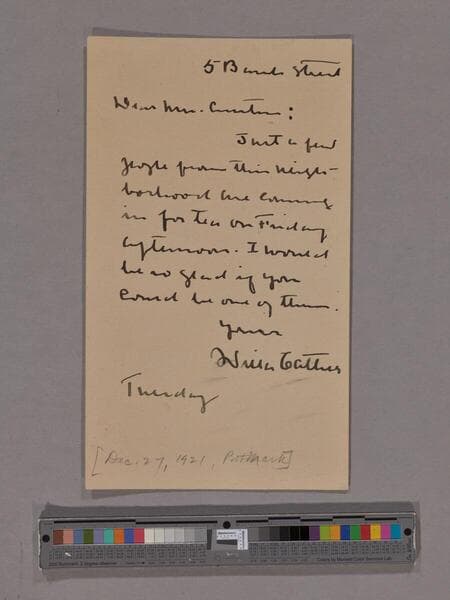 5 Bank Street
Dear Mrs.
Just a few
people from this neigh-
borhood are coming
in for tea on Friday
afternoon. I would
be so glad if you
could be one of them.
Yours
Willa Cather
Tuesday
[Dec. 27, 1921, Postmark]